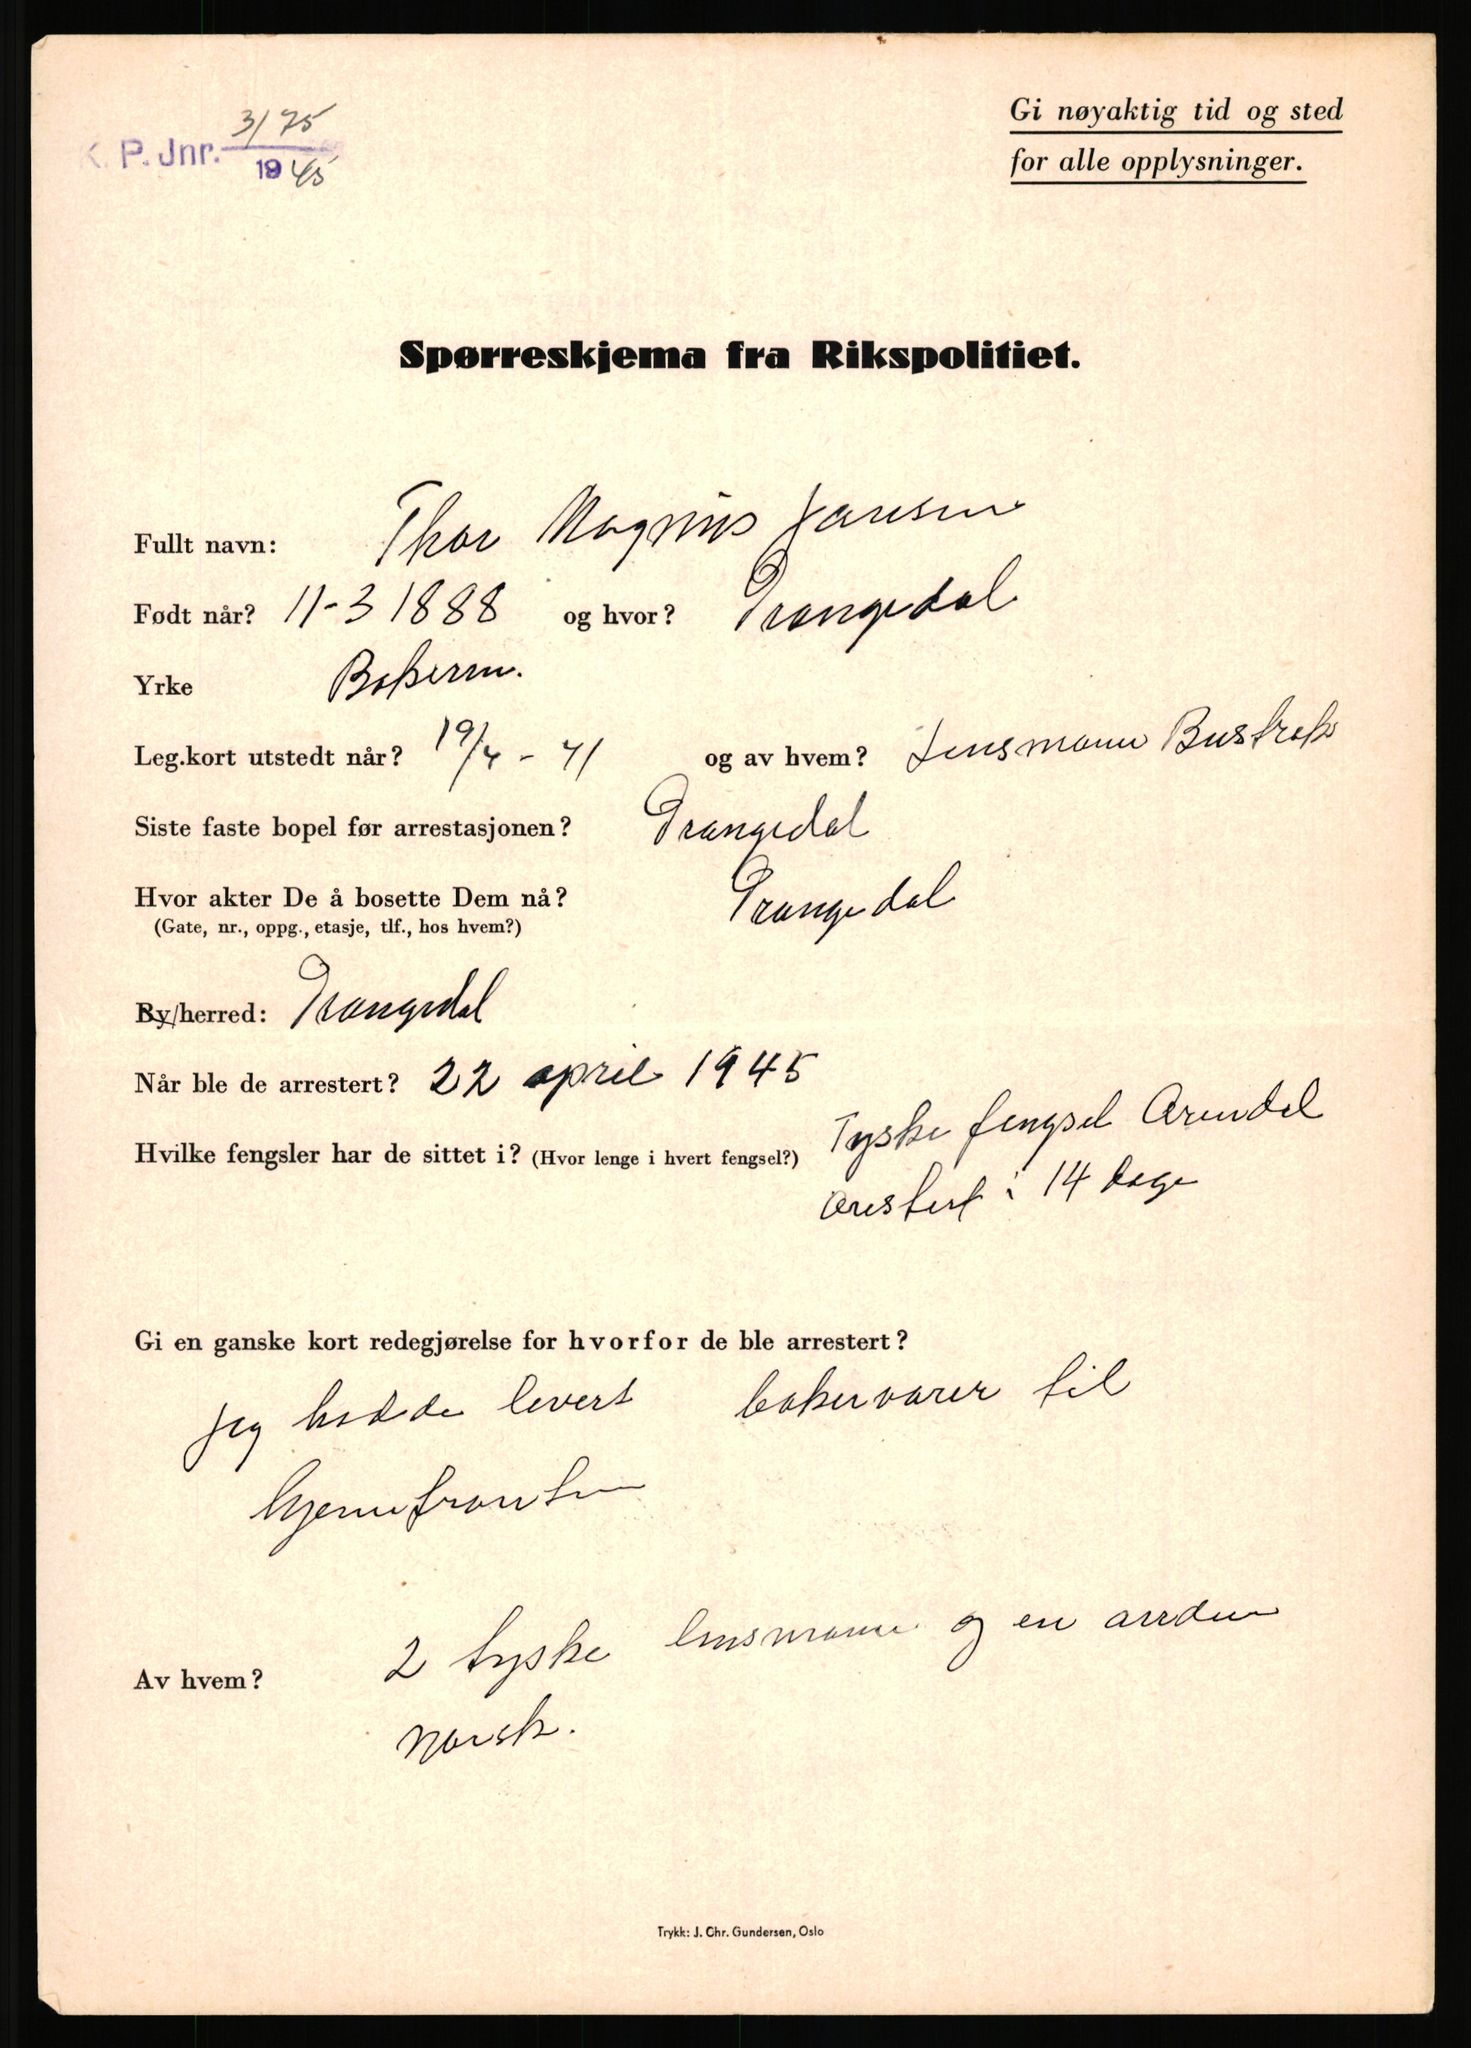 Gi nøyaktig tid og sted
for alle opplysninger.
K. P. Jnr. 3175
1945
Spørreskjema fra Rikspolitiet.
Fullt navn: Thor Magnus Jansen
Født når? 11-3 1888 og hvor? Drangedal
Yrke Bakerm.
Leg.kort utstedt når? 19/4 - 41 og av hvem? Lensmann Bustrak
Siste faste bopel før arrestasjonen? Drangedal
Hvor akter De å bosette Dem nå? Drangedal
(Gate, nr., oppg., etasje, tlf., hos hvem?)
By/herred: Drangedal
Når ble de arrestert? 22 april 1945
Hvilke fengsler har de sittet i? (Hvor lenge i hvert fengsel?) Tyske fengsel Arendal
arestert i 14 dage
Gi en ganske kort redegjørelse for hvorfor de ble arrestert?
jeg hadde levert bakervarer til
hjemefronten
Av hvem? 2 tyske lensmenn og en anden
norsk.
Trykk: J. Chr. Gundersen, Oslo